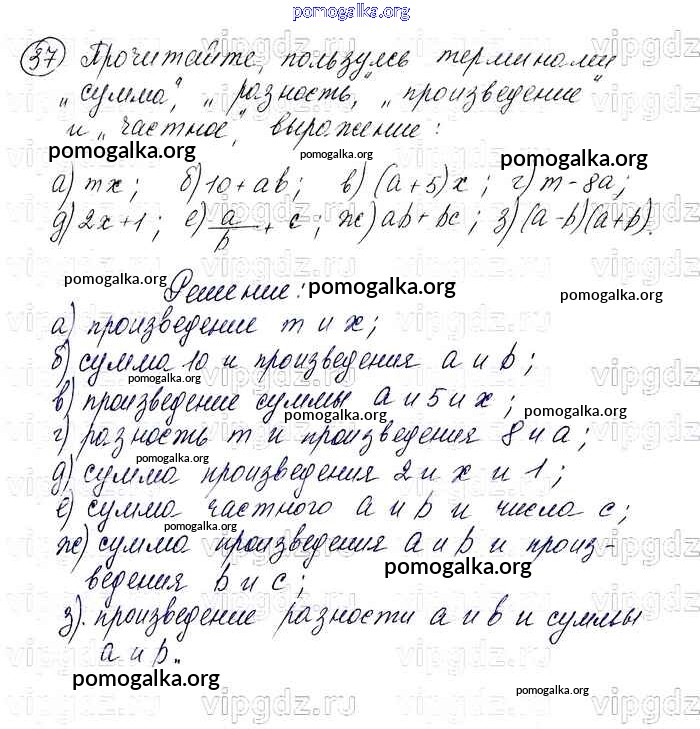 pomogalka.org
37 Прочитайте, пользуясь терминами
„сумма", „разность", „произведение"
и „частное", выражение:
pomogalka.org pomogalka.org pomogalka.org
а) mx; б) 10 + ab; в) (a + 5)x; г) m - 8a;
д) 2x + 1; е) a/b + c; ж) ab + bc; з) (a - b)(a + b).
pomogalka.org Решение: pomogalka.org pomogalka.org
а) произведение m и x;
б) сумма 10 и произведения a и b;
pomogalka.org
в) произведение суммы a и 5 и x;
pomogalka.org pomogalka.org
г) разность m и произведения 8 и a;
pomogalka.org
д) сумма произведения 2 и x и 1;
е) сумма частного a и b и числа c;
pomogalka.org
ж) сумма произведения a и b и произ-
ведения b и c;
pomogalka.org
з). произведение разности a и b и суммы
a и b.
pomogalka.org pomogalka.org
vipgdz.ru vipgdz.ru vipgdz.ru